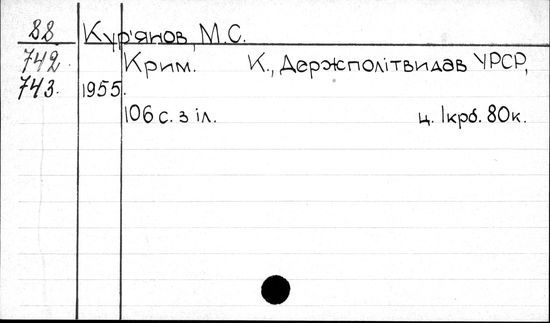 88 Кур'янов, М.С.
742. Крим. К., Держполітвидав УРСР,
743. 1955.
106 с. з іл. ц. 1крб. 80к.